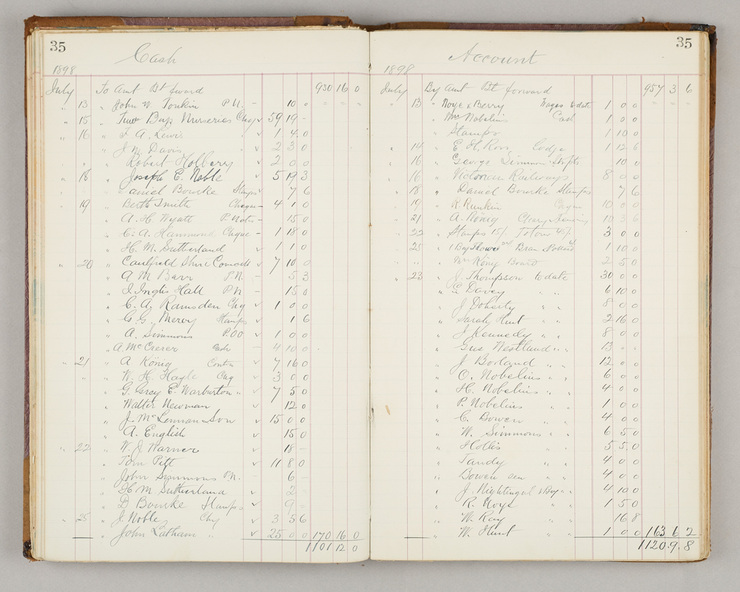 35
Cash
1898
July To Amt Bt forward 930 16 0
" 13 " John W. Tonkin P.N. 10 0
" 15 " Two Bays Nurseries Chq 39 19 -
" 16 " L. A. Lewis 1 4 0
" J. M. Davis 2 3 0
" Robert Holbery 2 0 0
" 18 " Joseph E. Noble 5 19 3
" Daniel Bourke Stamps 7 6
" 19 " Bert Smith Cheque 4 1 0
" A. H. Wyatt P. Notes 15 0
" C. A. Hammond Cheque 1 18 0
" H. M. Sutherland 1 1 0
" 20 " Caulfield Shire 7 10 0
" A M Barr P.N. 5 3
" Ingles Hall P.N 15 0
" C. A. Ramsden Chq 1 0 0
" C. G. Mercy Stamps 1 6
" A. Simmons P.O.O 1 0 0
" A McCreser 4 10 0
" 21 " A König Contra 7 16 0
" W. H. Hayle Chq 3 0 0
" G. Percy E. Warburton " 7 5 0
" Walter Newman 12 0
" J. McLennan & Son 15 0 0
" A. English 15 0
" 22 " W. J. Warner 18 -
" Tom Pitt 11 8 0
" John Simmons P.N. 6 -
" H. M Sutherland
" D Bourke Stamps 9
" 25 " J. Noble Chq 3 5 6
" John Latham " 25 0 0 170 16 0
1101 12 0
35
Account
1898
July By Amt Bt forward 957 3 6
" 13 " Noye & Berry Wages to date 1 0 0
" Wm Nobelius Cash 1 0 0
" Stamps 1 10 0
" 14 " E. H. Roy Lodge 1 12 6
" 16 " George Simmons 10 0
" 16 " Victorian Railways 8 0 0
" 18 " Daniel Bourke Stamps 7 6
" 19 " R. Rankin Chq 10 0 0
" 21 " A. König 10 3 6
" 22 " Stamps 15/- 3 0 0
" 25 " 1 10 0
" Wm König 2 5 0
" 23 " J. Thompson to date 30 0 0
" Davey " " 6 10 0
" J. Doherty " " 8 0 0
" Sarah Hunt " " 2 16 0
" J Kennedy " " 8 0 0
" Gus Westland " " 13 0 0
" J. Borland " " 12 0 0
" O. Nobelius " " 6 0 0
" H. Nobelius " " 4 0 0
" P. Nobelius " 1 0 0
" C. Bowen " " 4 0 0
" W. Simmons " " 6 5 0
" Hollis " 5 5 0
" Tandy " " 4 0 0
" Bowen sen " " 4 0 0
" J. Nightingale & Boy " 4 10 0
" R. Noye " " 1 5 0
" W. Roy " 16 8
" W. Hunt " 1 0 0 163 6 2
1120 9 8